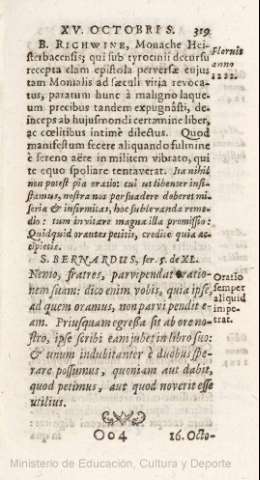 XV. OCTOBRIS. 319
B. RICHWINE, Monache Hei-
sterbacensis; qui sub tyrocinii decursu
recepta clam epistola perversæ cujus-
tam Monialis ad sæculi vitia revoca-
tus, paratum hunc à maligno laque-
um precibus tandem expugnâsti, de-
inceps ab hujusmondi certamine liber,
ac cœlitibus intimè dilectus. Quod
manifestum fecere aliquando fulmine
è sereno aëre in militem vibrato, qui
te equo spoliare tentaverat. Ita nihil
non potest pia oratio: cui ut libenter insi-
stamus, nostra nos persuadere deberet mi-
seria & infirmitas, hoc sublevanda reme-
dio: tum invitare magna illa promissio:
Quidquid orantes petitis, credite quia ac-
cipietis.
Floruit
anno
1222.
S. BERNARDUS, ser. 5. de XL.
Nemo, fratres, parvipendat oratio-
nem suam: dico enim vobis, quia ipse,
ad quem oramus, non parvi pendit e-
am. Priusquam egressa sit ab ore no-
stro, ipse scribi eam jubet in libro suo:
& unum indubitanter è duobus spe-
rare possumus, quoniam aut dabit,
quod petimus, aut quod noverit esse
utilius.
Oratio
semper
aliquid
impe-
trat.
OO4 16. Octo-
Ministerio de Educación, Cultura y Deporte